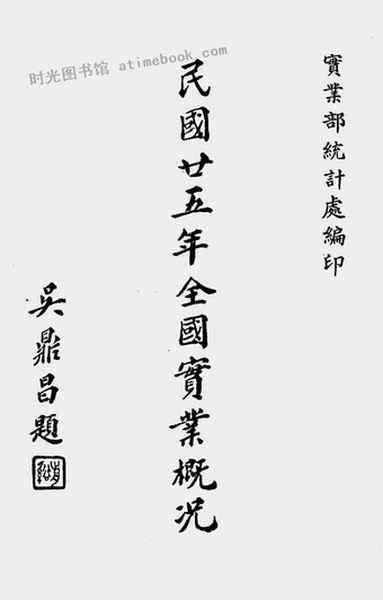 时光图书馆 atimebook.com
實業部統計處編印
民國廿五年全國實業概況
吳鼎昌題